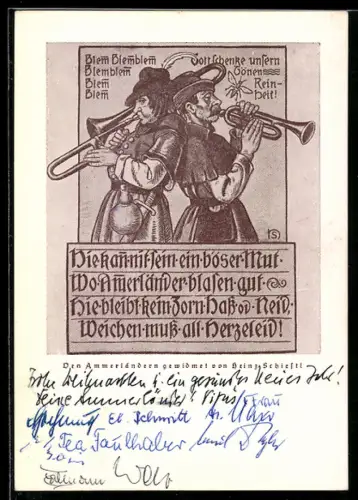 Blem Blemblem
Blemblem
Blem
Blem
Gott schenke unsern
Tönen
Rein-
heit!
HS
Hie kann nit sein ein böser Mut
Wo Ammerländer blasen gut
Hie bleibt kein Zorn Haß od. Neid,
Weichen muß all Herzeleid!
Den Ammerländern gewidmet von Heinz Schiestl
Frohe Weihnachten & ein gesundes Neues Jahr!
Deine Ammerländer!
Eb. Schmitt
Tea Faulhaber
Wolf